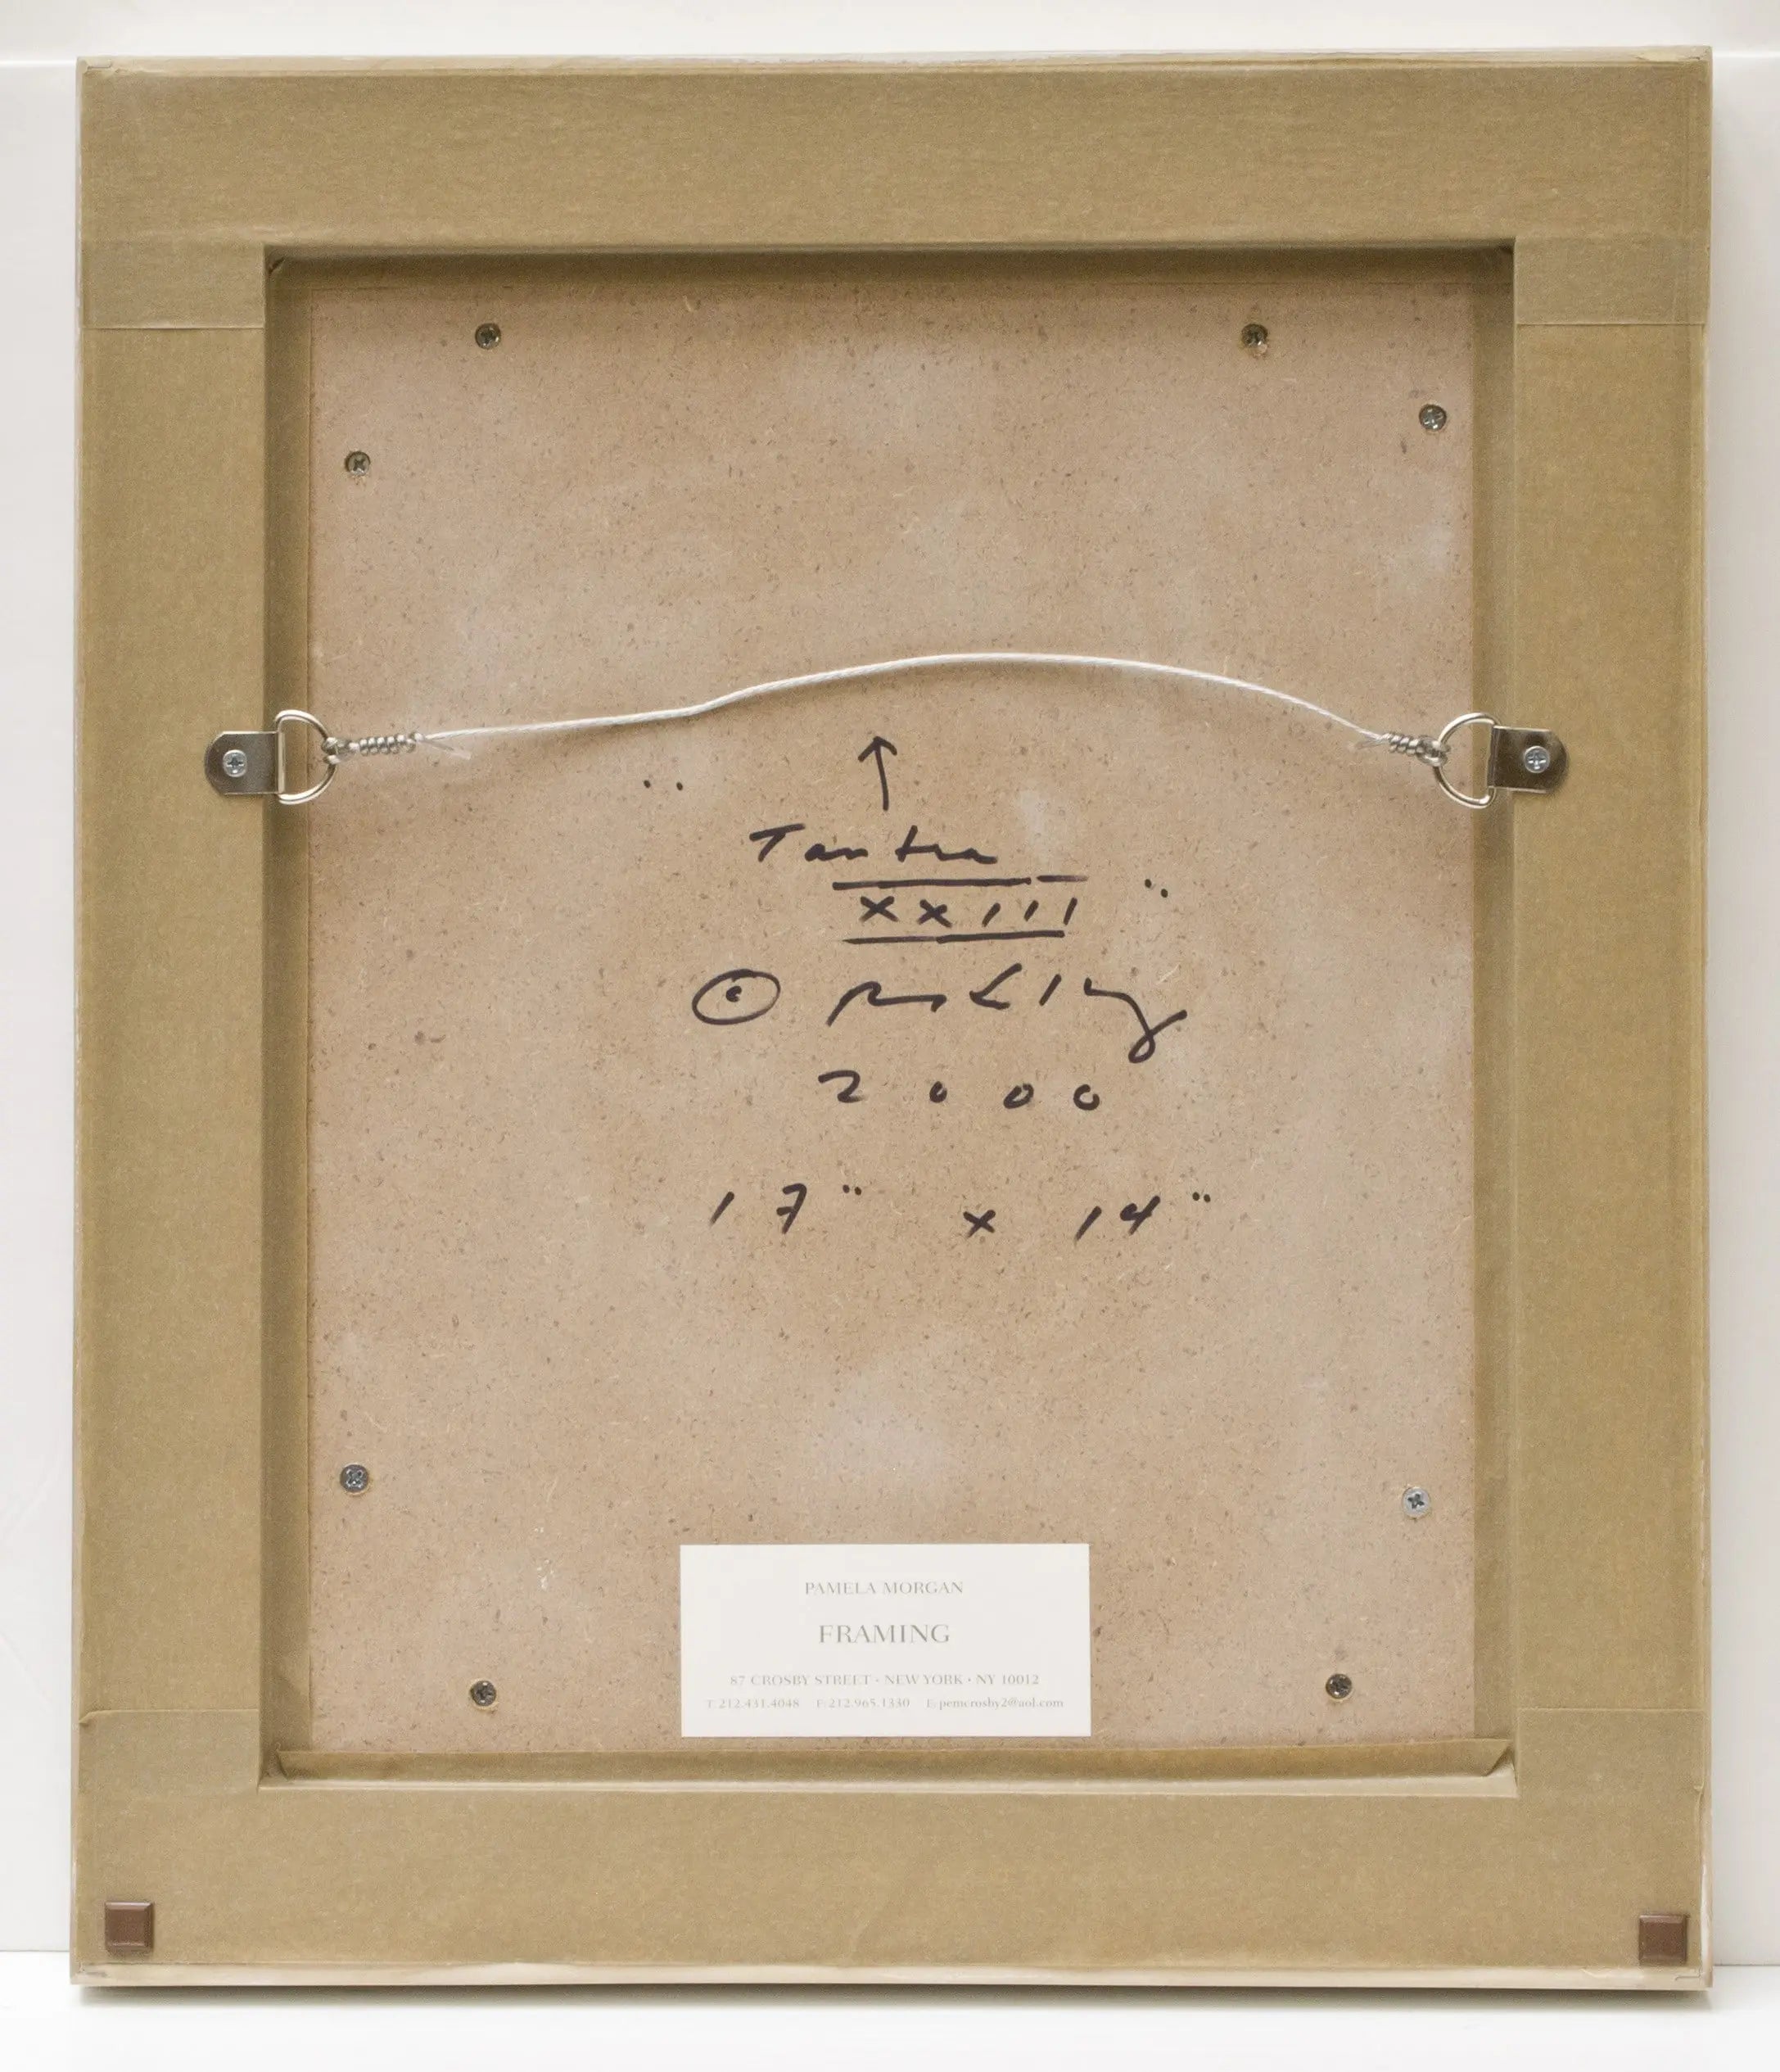 "Tantra
XXIII"
©
2000
17" x 14"
PAMELA MORGAN
FRAMING
87 CROSBY STREET · NEW YORK · NY 10012
T: 212.431.4048 F: 212.965.1330 E: pemcrosby2@aol.com